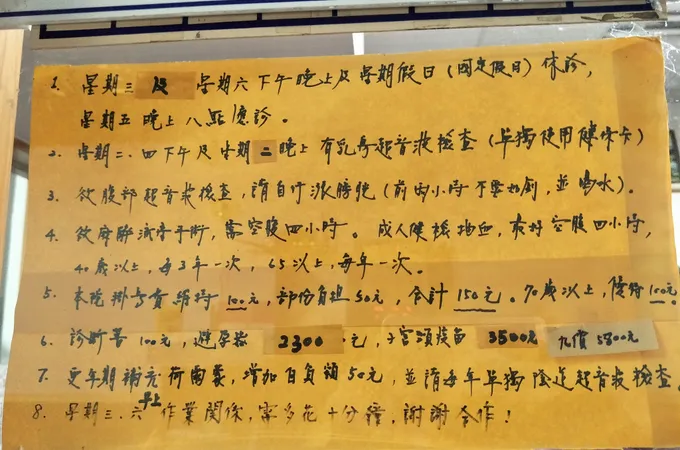 1. 星期三及星期六下午晚上及每期假日(國定假日)休診,
星期五晚上八點應診。
2. 星期二、四下午及星期二晚上有乳房超音波檢查(單獨使用健保卡)
3. 欲腹部超音波檢查,請自行漲膀胱(前兩小時不要如廁,並喝水)。
4. 需空腹四小時。成人健檢抽血,最好空腹四小時,
40歲以上,每3年一次,65以上,每年一次。
5. 本院掛號費維持100元,部份負担50元,合計150元。70歲以上,優待100元。
6. 診斷書100元,避孕器2300元,子宮頸疫苗3500元 九價5800元
7. 更年期補充荷爾蒙,增加自負額50元,並請每年單獨陰道超音波檢查
8. 星期三、六早上作業關係,需多花十分鐘,謝謝合作!